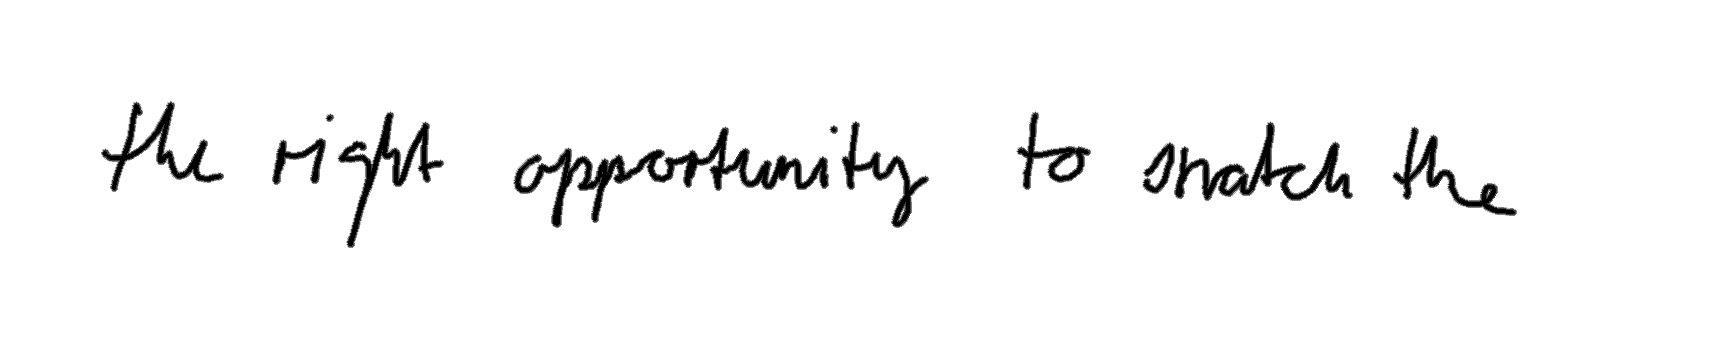 the right opportunity to snatch the